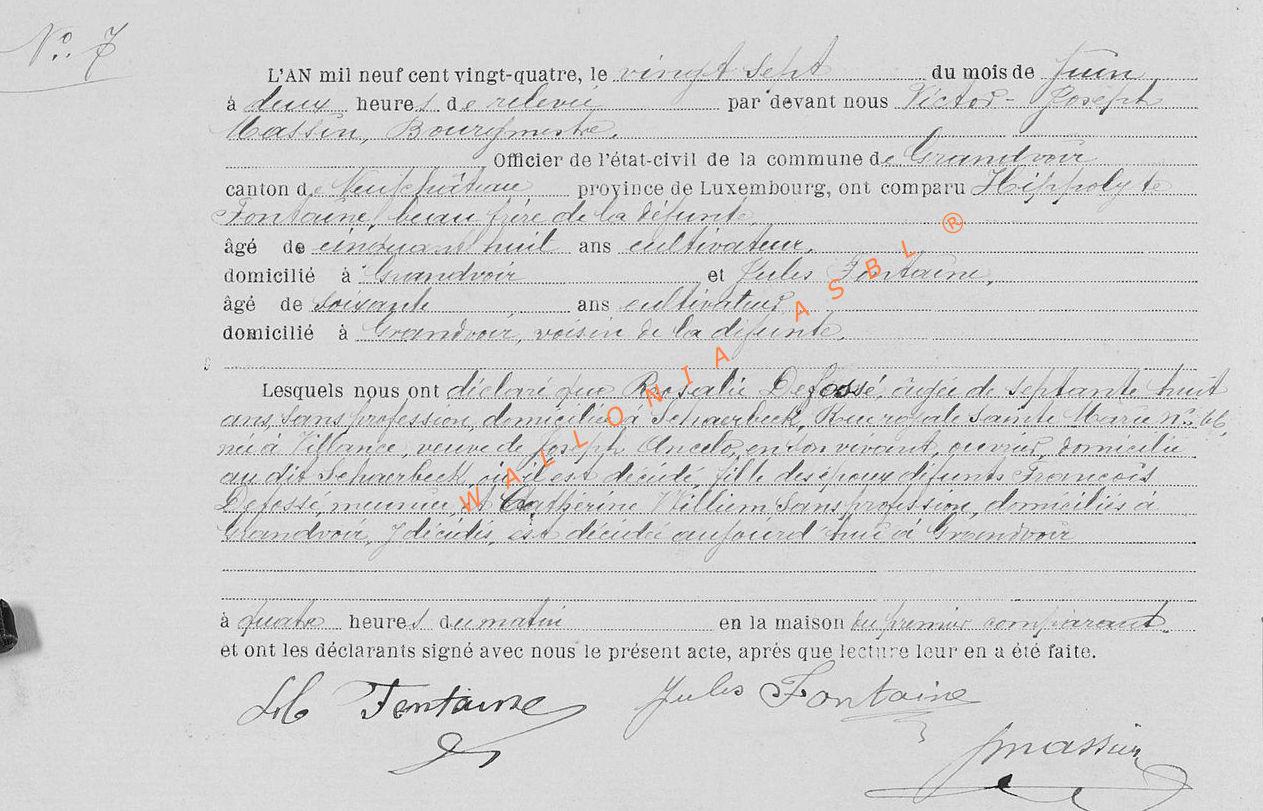 N°. 7
L'AN mil neuf cent vingt-quatre, le vingt sept du mois de Juin,
à deux heures de relevée par devant nous Victor-Joseph
Massin, Bourgmestre.
Officier de l'état-civil de la commune de Grandvoir
canton de Neufchâteau province de Luxembourg, ont comparu Hippolyte
Fontaine, beau frère de la défunte
âgé de cinquante huit ans cultivateur,
domicilié à Grandvoir et Jules Fontaine,
âgé de soixante ans cultivateur
domicilié à Grandvoir, voisin de la défunte.
Lesquels nous ont déclaré que Rosalie Defossé, âgée de septante huit
ans, sans profession, domiciliée à Schaerbeek, Rue royale Sainte Marie n° 66,
née à Villance, veuve de Joseph Ancelo, en son vivant, ouvrier, domicilié
au dit Schaerbeek, où il est décédé, fille des époux défunts François
Defossé, meunier et Cathérine Williem, sans profession, domiciliés à
Grandvoir, y décédés, est décédée aujourd'hui à Grandvoir
à quatre heures du matin en la maison du premier comparant.
et ont les déclarants signé avec nous le présent acte, après que lecture leur en a été faite.
Fontaine Jules Fontaine
Massin
WALLONIA ASBL ®